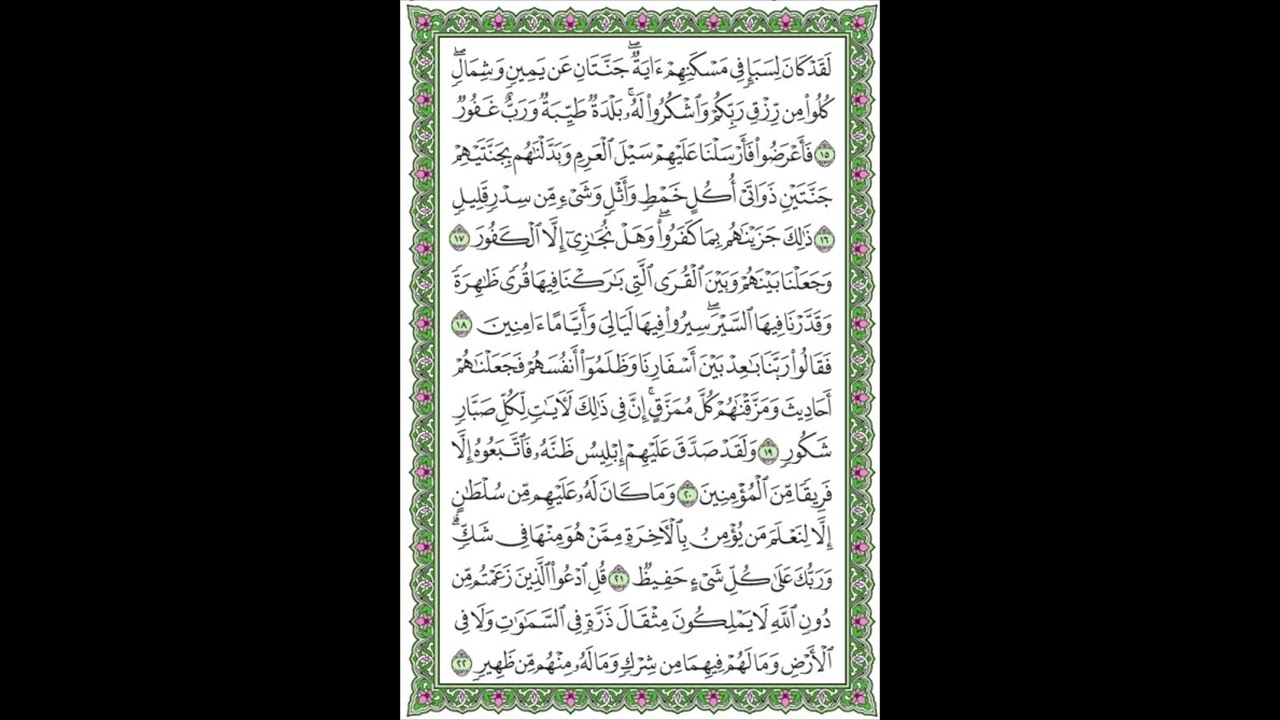 لَقَدْ كَانَ لِسَبَإٍ فِي مَسْكَنِهِمْ ءَايَةٌ ۖ جَنَّتَانِ عَن يَمِينٍ وَشِمَالٍ ۖ
كُلُوا۟ مِن رِّزْقِ رَبِّكُمْ وَٱشْكُرُوا۟ لَهُۥ ۚ بَلْدَةٌ طَيِّبَةٌ وَرَبٌّ غَفُورٌ
١٥ فَأَعْرَضُوا۟ فَأَرْسَلْنَا عَلَيْهِمْ سَيْلَ ٱلْعَرِمِ وَبَدَّلْنَٰهُم بِجَنَّتَيْهِمْ
جَنَّتَيْنِ ذَوَاتَىْ أُكُلٍ خَمْطٍ وَأَثْلٍ وَشَىْءٍ مِّن سِدْرٍ قَلِيلٍ
١٦ ذَٰلِكَ جَزَيْنَٰهُم بِمَا كَفَرُوا۟ ۖ وَهَلْ نُجَٰزِىٓ إِلَّا ٱلْكَفُورَ ١٧
وَجَعَلْنَا بَيْنَهُمْ وَبَيْنَ ٱلْقُرَى ٱلَّتِى بَٰرَكْنَا فِيهَا قُرًى ظَٰهِرَةً
وَقَدَّرْنَا فِيهَا ٱلسَّيْرَ ۖ سِيرُوا۟ فِيهَا لَيَالِىَ وَأَيَّامًا ءَامِنِينَ ١٨
فَقَالُوا۟ رَبَّنَا بَٰعِدْ بَيْنَ أَسْفَارِنَا وَظَلَمُوٓا۟ أَنفُسَهُمْ فَجَعَلْنَٰهُمْ
أَحَادِيثَ وَمَزَّقْنَٰهُمْ كُلَّ مُمَزَّقٍ ۚ إِنَّ فِى ذَٰلِكَ لَءَايَٰتٍ لِّكُلِّ صَبَّارٍ
شَكُورٍ ١٩ وَلَقَدْ صَدَّقَ عَلَيْهِمْ إِبْلِيسُ ظَنَّهُۥ فَٱتَّبَعُوهُ إِلَّا
فَرِيقًا مِّنَ ٱلْمُؤْمِنِينَ ٢٠ وَمَا كَانَ لَهُۥ عَلَيْهِم مِّن سُلْطَٰنٍ
إِلَّا لِنَعْلَمَ مَن يُؤْمِنُ بِٱلْءَاخِرَةِ مِمَّنْ هُوَ مِنْهَا فِى شَكٍّ ۗ
وَرَبُّكَ عَلَىٰ كُلِّ شَىْءٍ حَفِيظٌ ٢١ قُلِ ٱدْعُوا۟ ٱلَّذِينَ زَعَمْتُم مِّن
دُونِ ٱللَّهِ لَا يَمْلِكُونَ مِثْقَالَ ذَرَّةٍ فِى ٱلسَّمَٰوَٰتِ وَلَا فِى
ٱلْأَرْضِ وَمَا لَهُمْ فِيهِمَا مِن شِرْكٍ وَمَا لَهُۥ مِنْهُم مِّن ظَهِيرٍ ٢٢